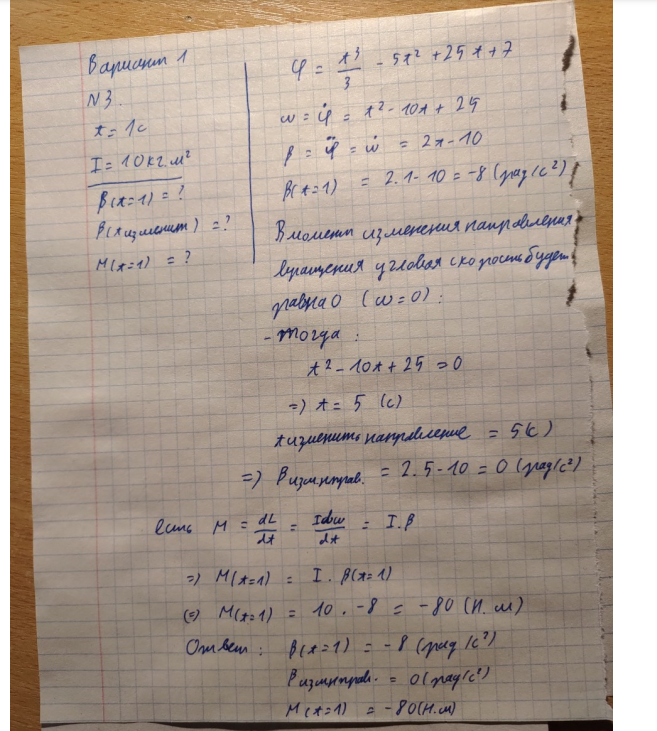 Вариант 1
N3.
t = 1c
I = 10 кг.м²
β(t=1) = ?
β(t изменит) = ?
M(t=1) = ?
φ = t³/3 - 5t² + 25t + 7
ω = φ̇ = t² - 10t + 25
β = φ̈ = ω̇ = 2t - 10
β(t=1) = 2.1 - 10 = -8 (рад/с²)
В момент изменения направления
вращения угловая скорость будет
равна 0 (ω = 0) :
- тогда :
t² - 10t + 25 = 0
=) t = 5 (c)
t изменить направление = 5(c)
=) β измннправ. = 2.5 - 10 = 0 (рад/с²)
есть M = dL/dt = Idω/dt = I.β
=) M(t=1) = I . β(t=1)
(=) M(t=1) = 10 . -8 = -80 (Н.м)
Ответ : β(t=1) = -8 (рад/с²)
β измннправ. = 0 (рад/с²)
M(t=1) = -80(Н.м)